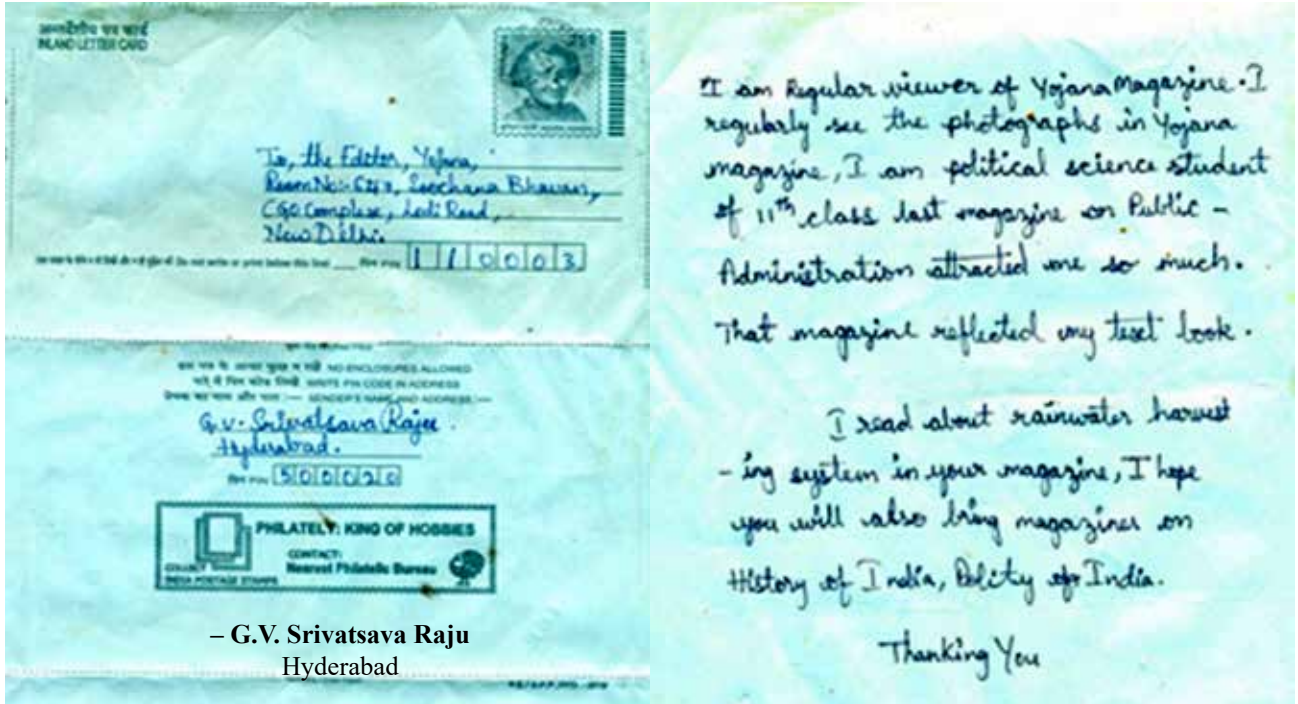 अन्तर्देशीय पत्र कार्ड
INLAND LETTER CARD
To, the Editor, Yojana,
Room No:- 643, Soochana Bhawan,
CGO Complex, Lodi Road,
New Delhi.
110003
NO ENCLOSURES ALLOWED
WRITE PIN CODE IN ADDRESS
SENDER'S NAME AND ADDRESS :—
G.V. Srivatsava Rajee.
Hyderabad.
पिन PIN 500020
PHILATELY: KING OF HOBBIES
CONTACT:
Nearest Philatelic Bureau
COLLECT
INDIA POSTAGE STAMPS
– G.V. Srivatsava Raju
Hyderabad
I am Regular viewer of Yojana Magazine. I
regularly see the photographs in Yojana
magazine, I am political science student
of 11th class last magazine on Public -
Administration attracted me so much.
That magazine reflected my text book.
I read about rainwater harvest
- ing system in your magazine, I hope
you will also bring magazines on
History of India, Polity of India.
Thanking You